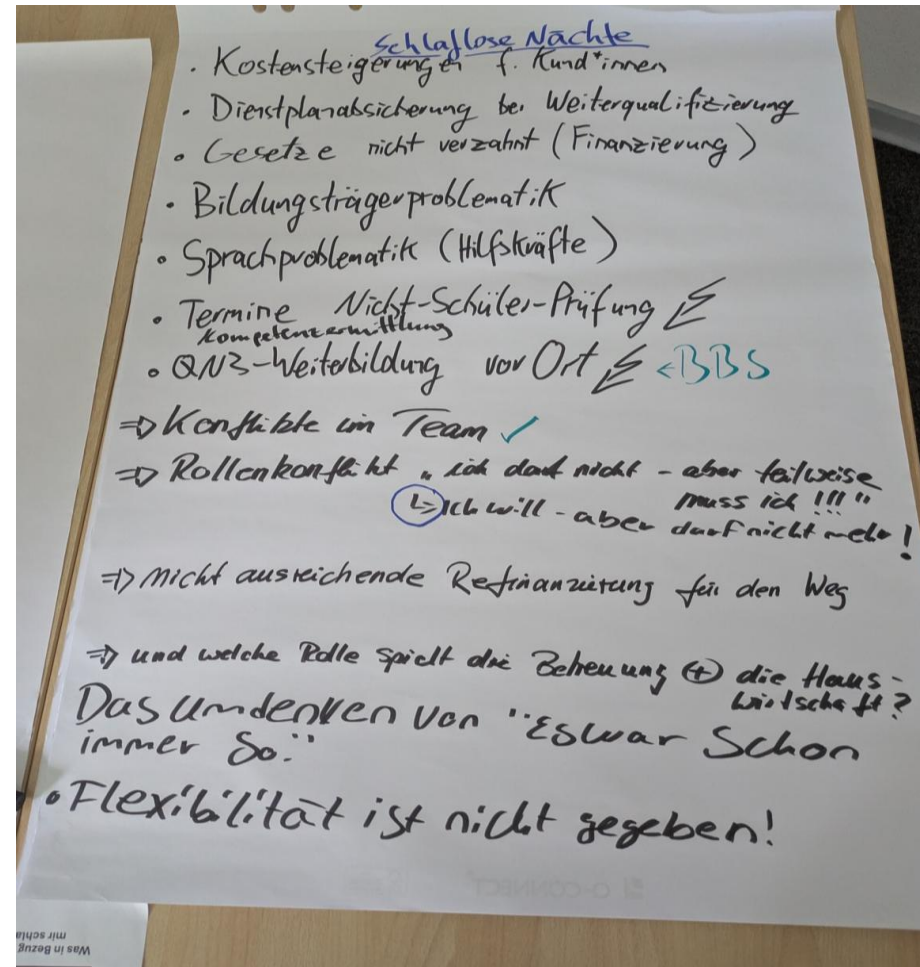 Schlaflose Nächte
· Kostensteigerungen f. Kund*innen
· Dienstplanabsicherung bei Weiterqualifizierung
· Gesetze nicht verzahnt (Finanzierung)
· Bildungsträgerproblematik
· Sprachproblematik (Hilfskräfte)
· Termine Nicht-Schüler-Prüfung
Kompetenzermittlung
· QN3-Weiterbildung vor Ort ← BBS
⇒ Konflikte im Team ✓
⇒ Rollenkonflikt „ich darf nicht - aber teilweise
muss ich !!!"
↳ Ich will - aber darf nicht mehr!
⇒ nicht ausreichende Refinanzierung für den Weg
⇒ und welche Rolle spielt die Betreuung ⊕ die Haus-
wirtschaft?
Das umdenken von "Es war Schon
immer So."
· Flexibilität ist nicht gegeben!
Was in Bezug
mir schla